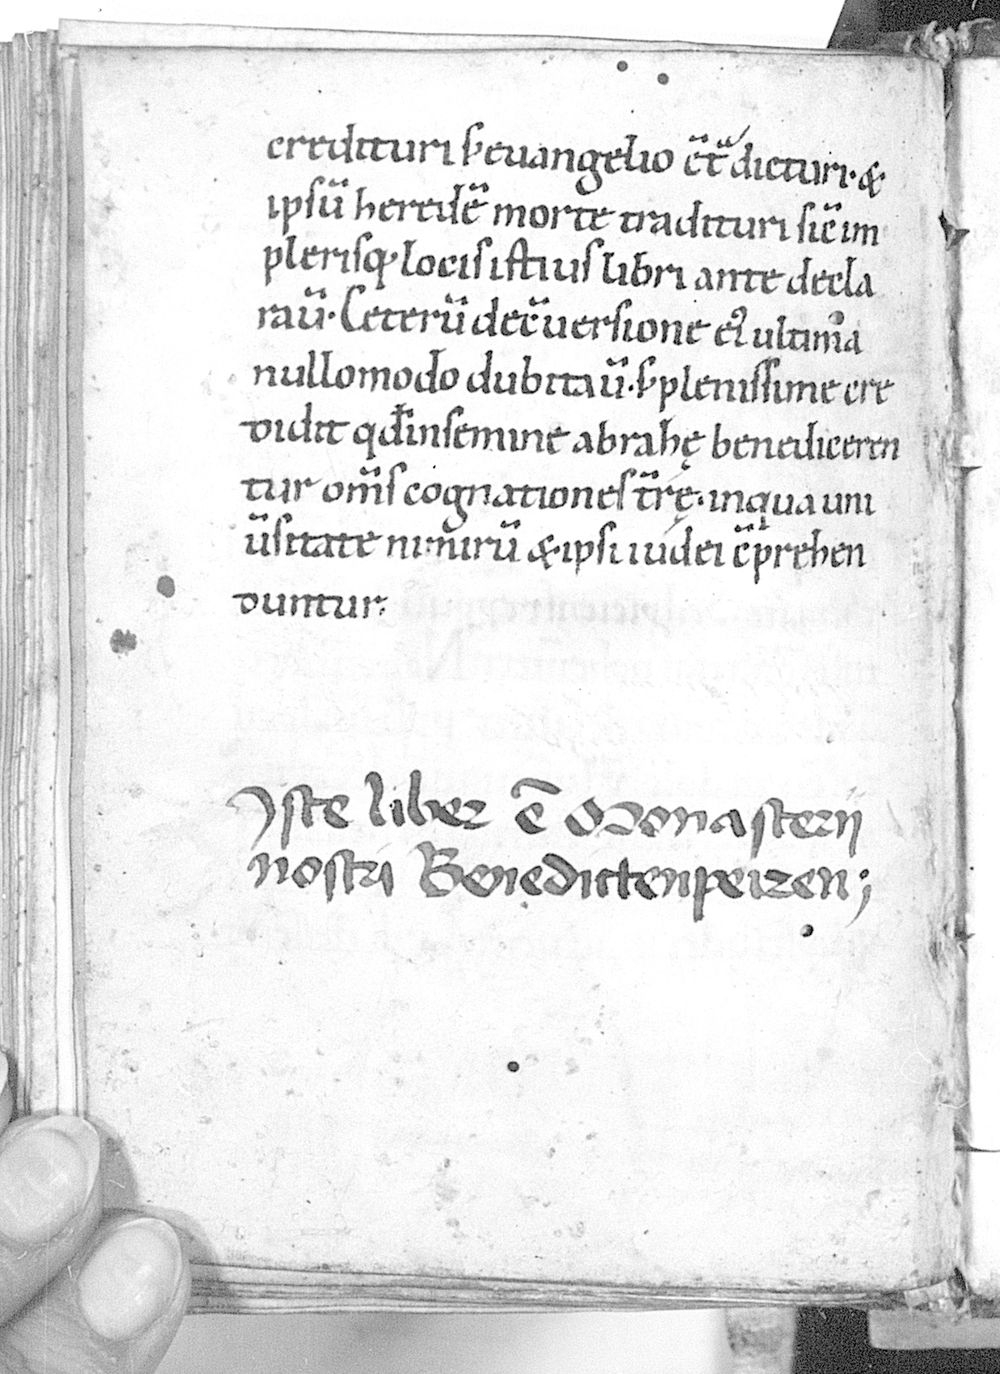 credituri s; euangelio c̄t̄dicturi· &
ipsū heredē morte tradituri sic̄ im
plerisq; locis istius libri ante decla
rau̅· Ceterū de c̄uersione eꝰ ultima
nullomodo dubitau̅· s; plenissime cre
didit qđ in semine abrahę benediceren
tur om̄s cognationes t̄rę· in qua uni
u̅sitate nimirū & ipsi iudei c̄prehen
duntur·
Iste liber ē Monasterij
nostri Benedictenpeiren;